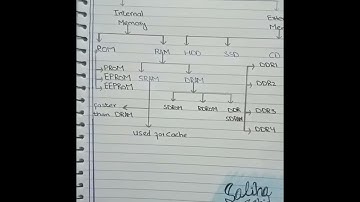 Internal Memory
Exte
ROM RAM HDD SSD CD
PROM
EPROM
EEPROM
SRAM DRAM
DDR1
DDR2
DDR3
DDR4
SDRAM RDRAM DDR SDRAM
faster than DRAM
Used for Cache
Saliha